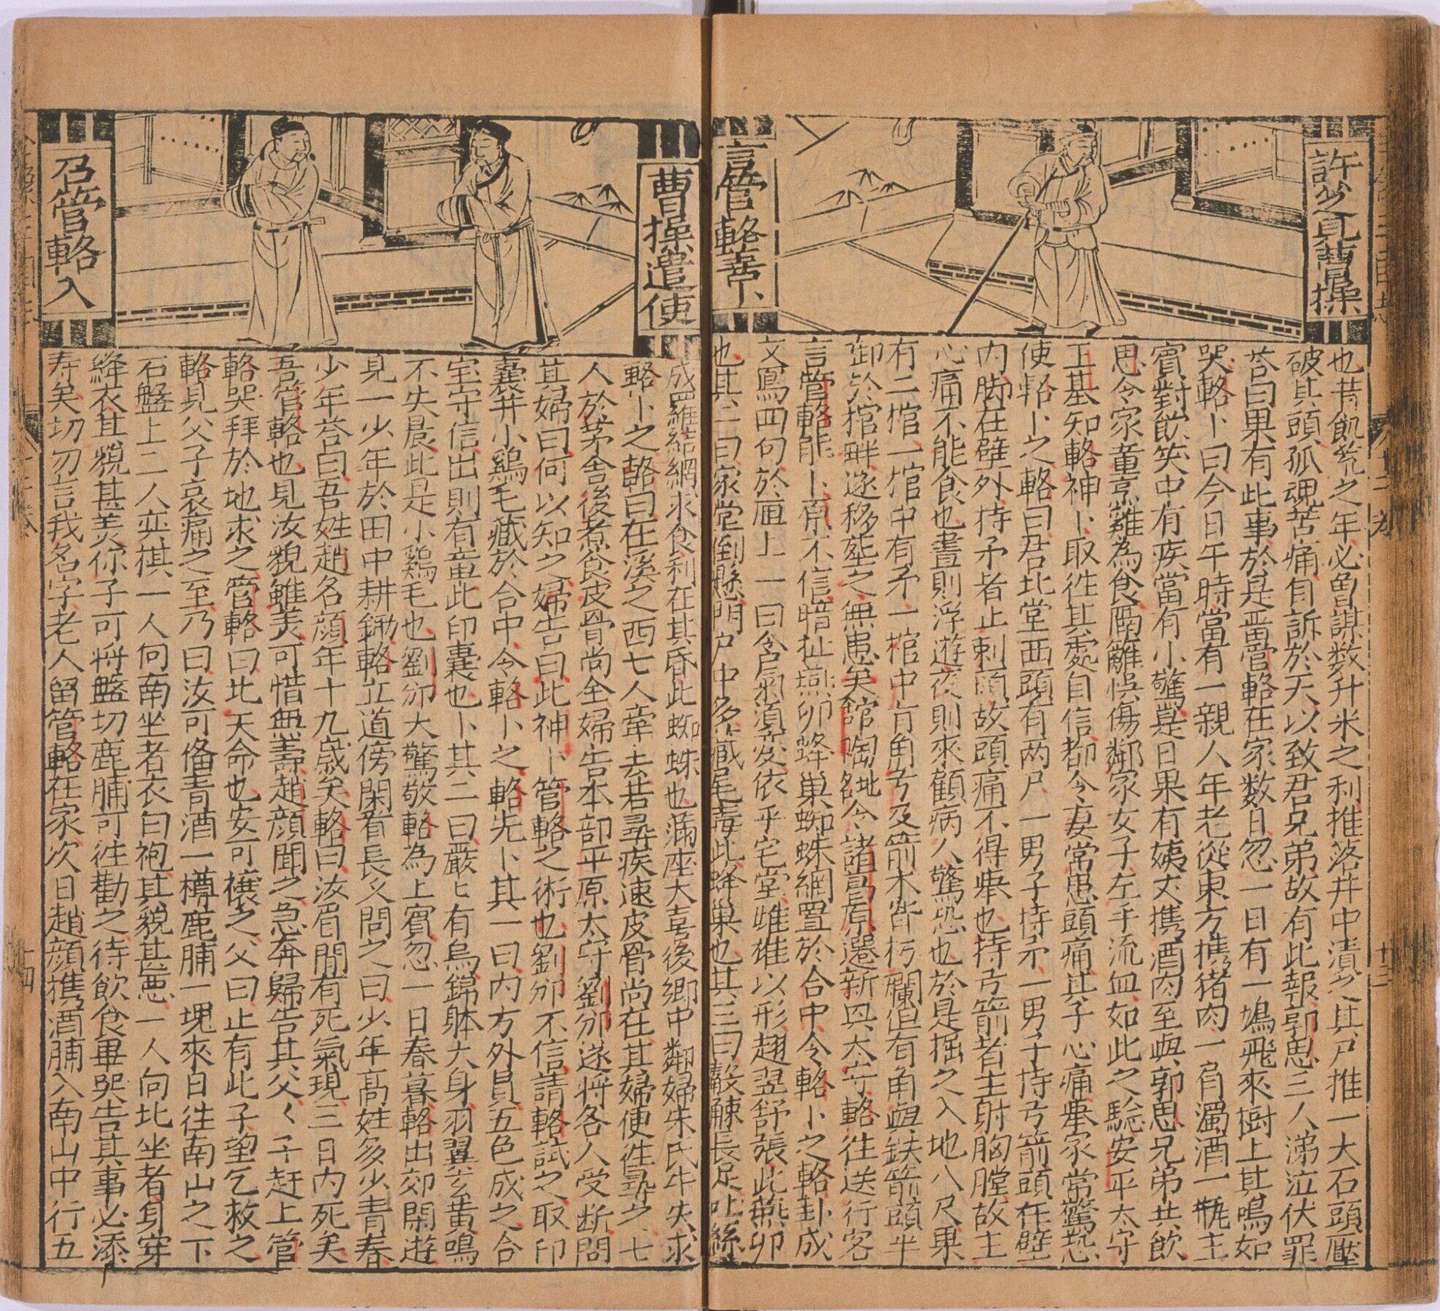 許芝見曹操
言管輅善卜
也昔飢荒之年必曽謀数升米之利推落井中漬之其戸推一大石頭壓
破其頭孤魂苦痛自訴於天以致君兄弟故有此報郭恩三人涕泣伏罪
荅曰果有此事於是畱管輅在家数日忽一日有一鳩飛來樹上其鳴如
哭輅卜曰今日午時當有一親人年老從東方携猪肉一肩濁酒一瓶主
賓對飲笑中有疾當有小驚是日果有姨丈携酒肉至與郭恩兄弟共飲
恩令家童烹雞為食鴈離悞傷鄰家女子左手流血如此之驗安平太守
王基知輅神卜取徃其處自信都令妻常患頭痛其子心痛舉家常驚恐
使輅卜之輅曰君北堂西頭有两尸一男子持矛一男子持弓箭頭在壁
内脚在壁外持矛者止刺頭故頭痛不得舉也持弓箭者主射胸膛故主
心痛不能食也晝則浮遊夜則來顧病人驚恐也於是掘之入地八尺果
有二棺一棺中有矛一棺中有角弓及箭木皆朽爛但有角與鉄箭頭半
御於棺畔遂移塟之無患矣舘陶縣令諸葛原遷新興太守輅徃送行客
言管輅能卜原不信暗扯燕卵蜂巢蜘蛛網置於合中令輅卜之輅卦成
文寫四句於匣上一曰含氣湏変依乎宅堂雌雄以形翅翌舒張此燕卵
也其二曰家堂倒懸門户中多藏尾毒此蜂巢也其三曰觳觫長足吐絲
曹操遣使
召管輅入
成羅結網求食利在其昏此蜘蛛也滿座大喜後鄉中鄰婦朱氏牛失求
輅卜之輅曰在溪之西七人牽去若尋疾速皮骨尚在其婦使徃尋之七
人於茅舎後煮食皮骨尚全婦告本部平原太守劉邠遂将各人受断問
其婦曰何以知之婦告曰此神卜管輅之術也劉邠不信請輅試之取印
囊井小鷄毛藏於合中令輅卜之輅先卜其一曰内方外員五色成之合
宝守信出則有章此印囊也卜其二曰嚴匕有烏錦躰大身羽翼玄黄鳴
不失晨此是小鷄毛也劉邠大驚敬輅為上賓忽一日春暮輅出郊閑遊
見一少年於田中耕鋤輅立道傍閑看長久問之曰少年高姓多少青春
少年荅曰吾姓趙名顔年十九歲矣輅曰汝眉間有死氣現三日内死矣
吾管輅也見汝貌雖美可惜無壽趙顔聞之急奔歸告其父く子赶上管
輅哭拜於地求之管輅曰此天命也安可禳之父曰止有此子望乞救之
輅見父子哀痛之至乃曰汝可俻青酒一樽鹿脯一塊來日徃南山之下
石盤上二人奕棋一人向南坐者衣白袍其貌甚惡一人向北坐者身穿
絳衣其貌甚羙你子可将盤切鹿脯可徃勸之待飲食畢哭告其事必添
寿矣切勿言我名字老人留管輅在家次日趙顔携酒脯入南山中行五